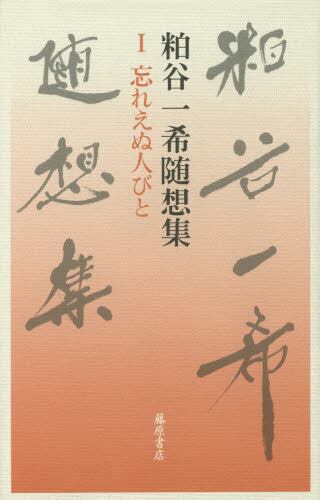 粕谷一希
随想集
粕谷一希随想集
I 忘れえぬ人びと
藤原書店